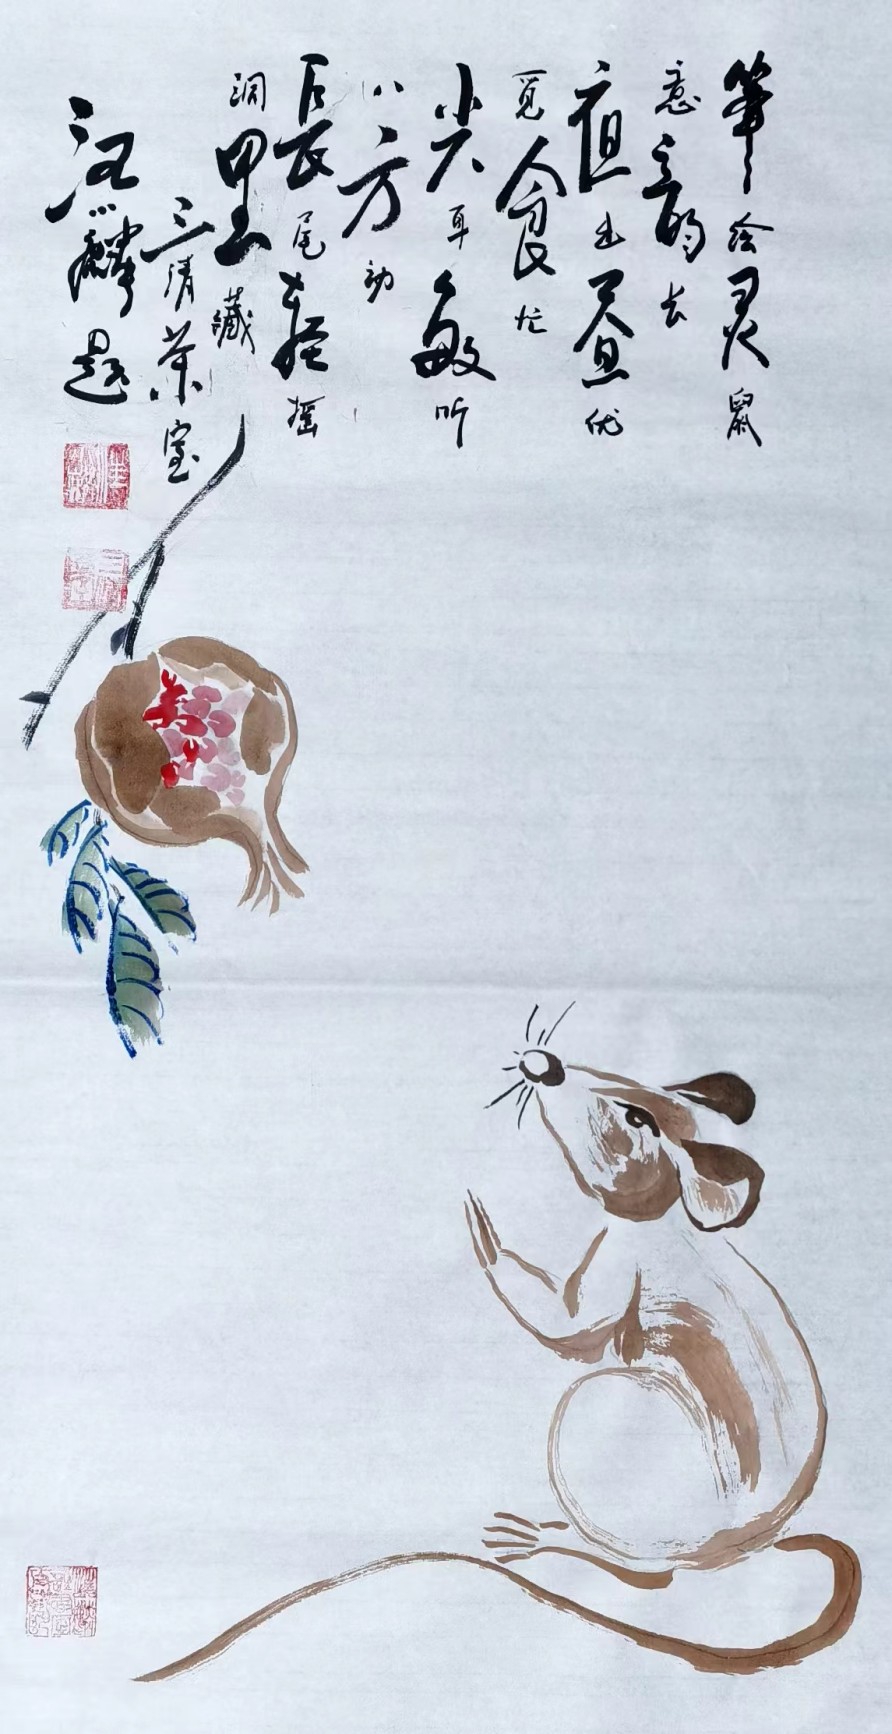 筆绘灵鼠
意韵长
出昼伏
觅食忙
尖耳敏听
八方动
長尾轻摇
洞里藏
三清茶室
汪小麟题